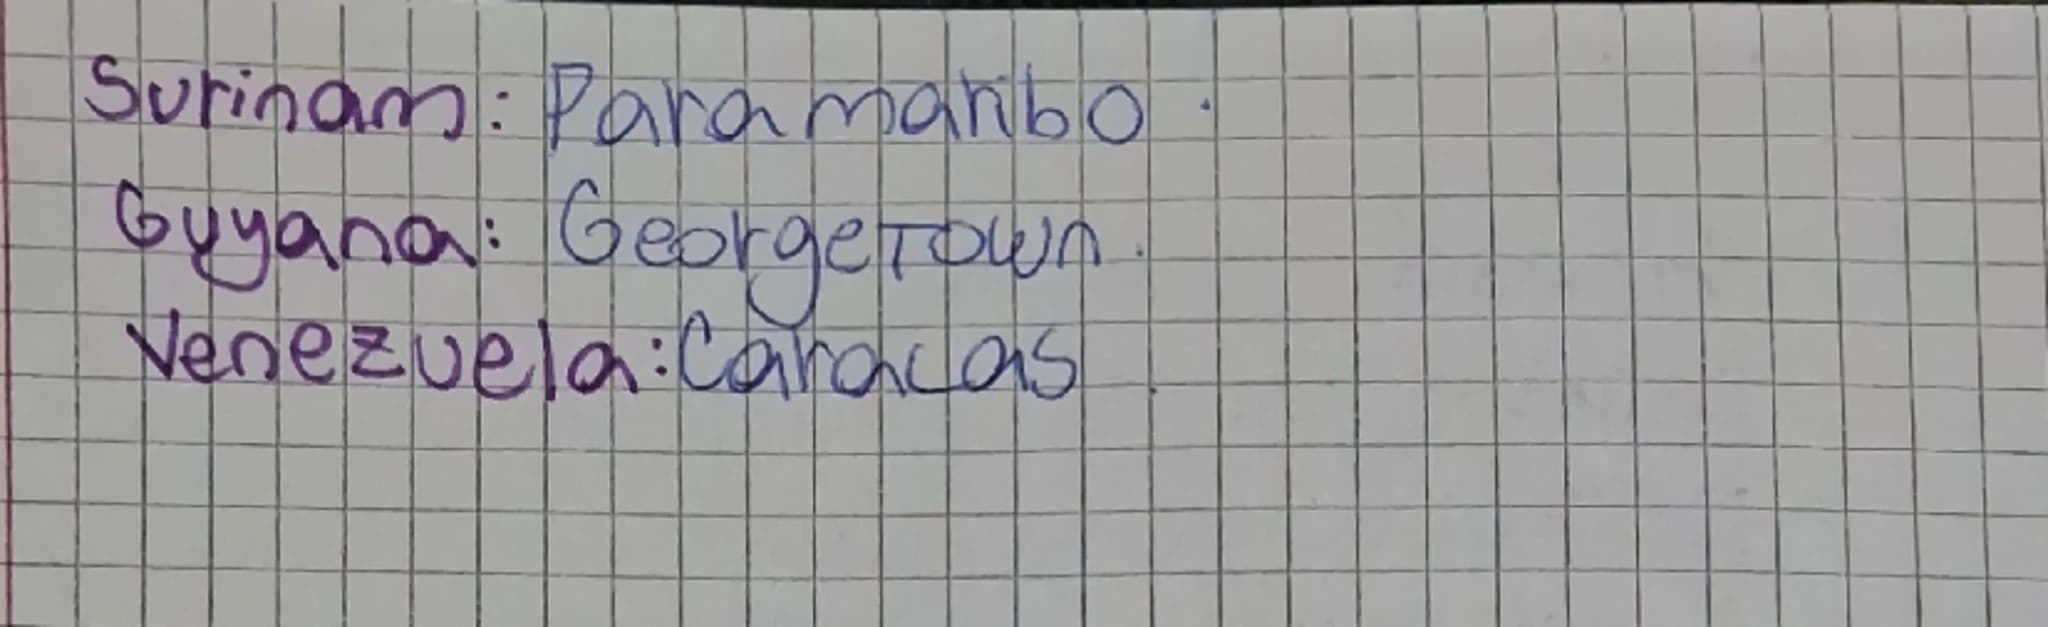 Surinam: Paramaribo.
Guyana: GeorgeTown.
Venezuela: Caracas.